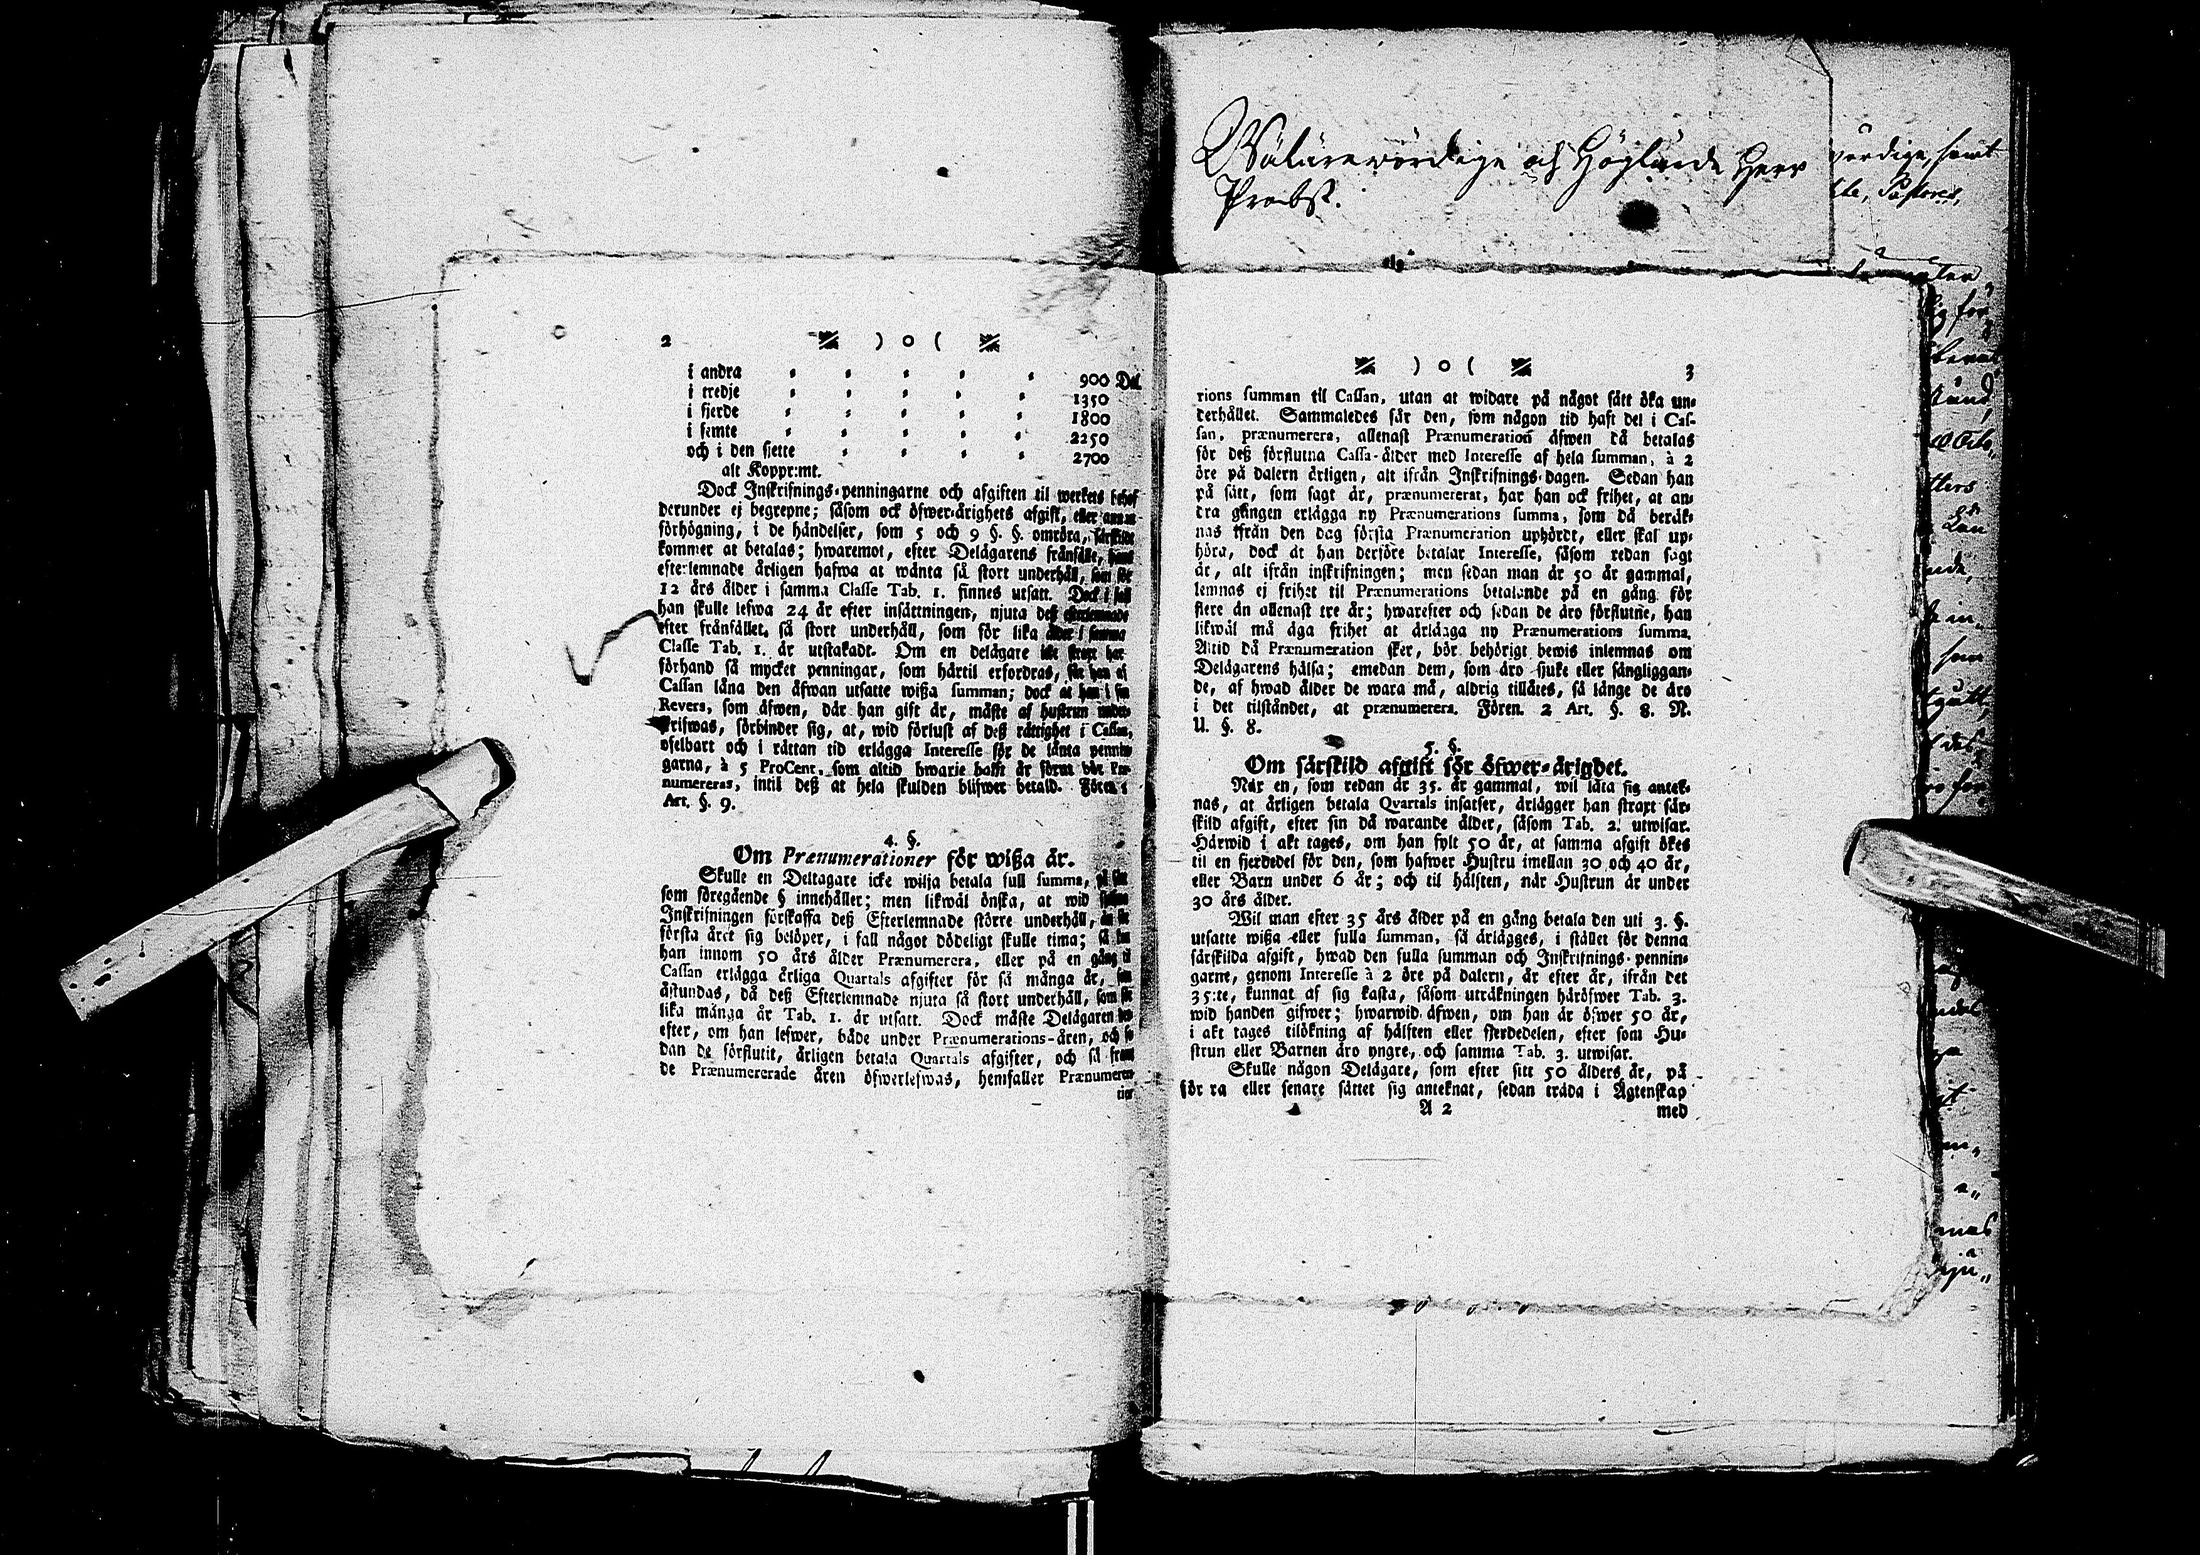 2 ) o (
i andra 900 Dal.
i tredje 1350
i fjerde 1800
i femte 2250
och i den siette 2700
alt Koppr:mt.
Dock Inskrifnings-penningarne och afgiften til werkets behof
derunder ej begrepne; såsom ock öfwer-årighets afgift, eller annan
förhögning, i de händelser, som 5 och 9 §. §. omröra, särskildt
kommer at betalas; hwaremot, efter Delägarens frånfälle, hans
efterlemnade årligen hafwa at wänta så stort underhåll, som för
12 års ålder i samma Classe Tab. 1. finnes utsatt. Dock i fall
han skulle lefwa 24 år efter insättningen, njuta deß efterlemnade
efter frånfället, så stort underhåll, som för lika ålder i samma
Classe Tab. 1. är utstakadt. Om en delägare icke straxt har
förhand så mycket penningar, som härtil erfordras, får han af
Cassan låna den äfwan utsatte wißa summan; dock at han i sin
Revers, som äfwen, där han gift är, måste af hustrun under-
skrifwas, förbinder sig, at, wid förlust af deß rättighet i Cassan,
ofelbart och i rättan tid erlägga Interesse för de lånta pennin-
garna, à 5 ProCent, som altid hwarje halft år förut bör Præ-
numereras, intil deß at hela skulden blifwer betald. Fören. 1
Art. §. 9.
4. §.
Om Prænumerationer för wißa år.
Skulle en Deltagare icke wilja betala full summa, på sätt
som föregående § innehåller; men likwäl önska, at wid sjelfwa
Inskrifningen förskaffa deß Efterlemnade större underhåll, än för
första året sig belöper, i fall något dödeligt skulle tima; så kan
han innom 50 års ålder Prænumerera, eller på en gång til
Cassan erlägga årliga Quartals afgifter för så många år, som
åstundas, då deß Efterlemnade njuta så stort underhåll, som för
lika många år Tab. 1. är utsatt. Dock måste Delägaren der-
efter, om han lefwer, både under Prænumerations-åren, och se-
dan de förflutit, årligen betala Quartals afgifter, och så framt
de Prænumererade åren öfwerlefwas, hemfaller Prænumera-
tior
Wälärewördige och Höglärde Herr
Probst.
wördige, samt
Pastores,
) o ( 3
rions summan til Cassan, utan at widare på något sätt öka un-
derhållet. Sammaledes får den, som någon tid haft del i Cas-
san, prænumerera, allenast Prænumeration äfwen då betalas
för deß förflutna Cassa-ålder med Interesse af hela summan, à 2
öre på dalern årligen, alt ifrån Inskrifnings-dagen. Sedan han
på sätt, som sagt är, prænumererat, har han ock frihet, at an-
dra gången erlägga ny Prænumerations summa, som då beräk-
nas ifrån den dag första Prænumeration uphördt, eller skal up-
höra, dock at han derföre betalar Interesse, såsom redan sagt
är, alt ifrån inskrifningen; men sedan man är 50 år gammal,
lemnas ej frihet til Prænumerations betalande på en gång för
flere än allenast tre år; hwarefter och sedan de äro förflutne, han
likwäl må äga frihet at ärlägga ny Prænumerations summa.
Altid då Prænumeration sker, bör behörigt bewis inlemnas om
Delägarens hälsa; emedan dem, som äro sjuke eller sängliggan-
de, af hwad ålder de wara må, aldrig tillåtes, så länge de äro
i det tilståndet, at prænumerera. Fören. 2 Art. §. 8. N.
U. §. 8.
5. §.
Om särskild afgift för öfwer-årighet.
När en, som redan är 35. år gammal, wil låta sig antek-
nas, at årligen betala Qvartals insatser, ärlägger han straxt sär-
skild afgift, efter sin då warande ålder, såsom Tab. 2. utwisar.
Härwid i akt tages, om han fylt 50 år, at samma afgift ökes
til en fjerdedel för den, som hafwer Hustru imellan 30 och 40 år,
eller Barn under 6 år; och til hälften, när Hustrun är under
30 års ålder.
Wil man efter 35 års ålder på en gång betala den uti 3. §.
utsatte wißa eller fulla summan, så ärlägges, i stället för denna
särskilda afgift, hwad den fulla summan och Inskrifnings-pennin-
garne, genom Interesse à 2 öre på dalern, år efter år, ifrån det
35:te, kunnat af sig kasta, såsom uträkningen häröfwer Tab. 3.
wid handen gifwer; hwarwid äfwen, om han är öfwer 50 år,
i akt tages tilökning af hälften eller fjerdedelen, efter som Hu-
strun eller Barnen äro yngre, och samma Tab. 3. utwisar.
Skulle någon Delägare, som efter sitt 50 ålders år, på
för ra eller senare sättet sig anteknat, sedan träda i Ägtenskap
A 2 med